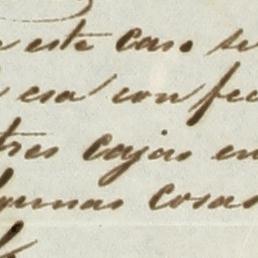 este caso se
esa con fec
tres cajas en
cosas